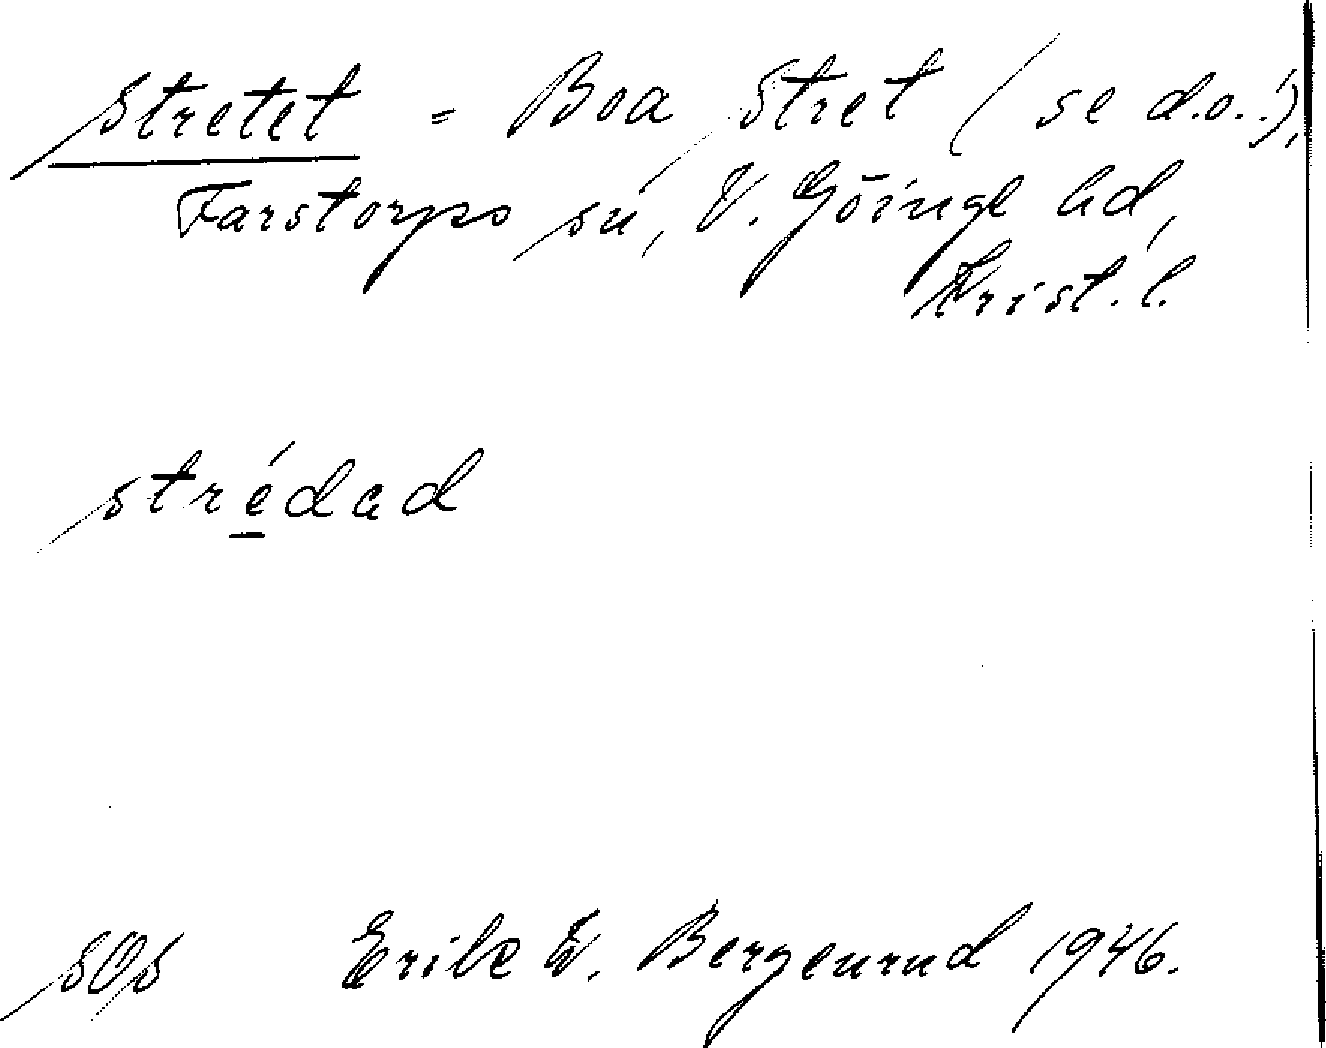 Stretet = Boa Stret (se d.o.!),
Farstorps sn, V. Göinge hd,
Krist. l.
strédad
sOs Erik E. Bergenrud 1946.